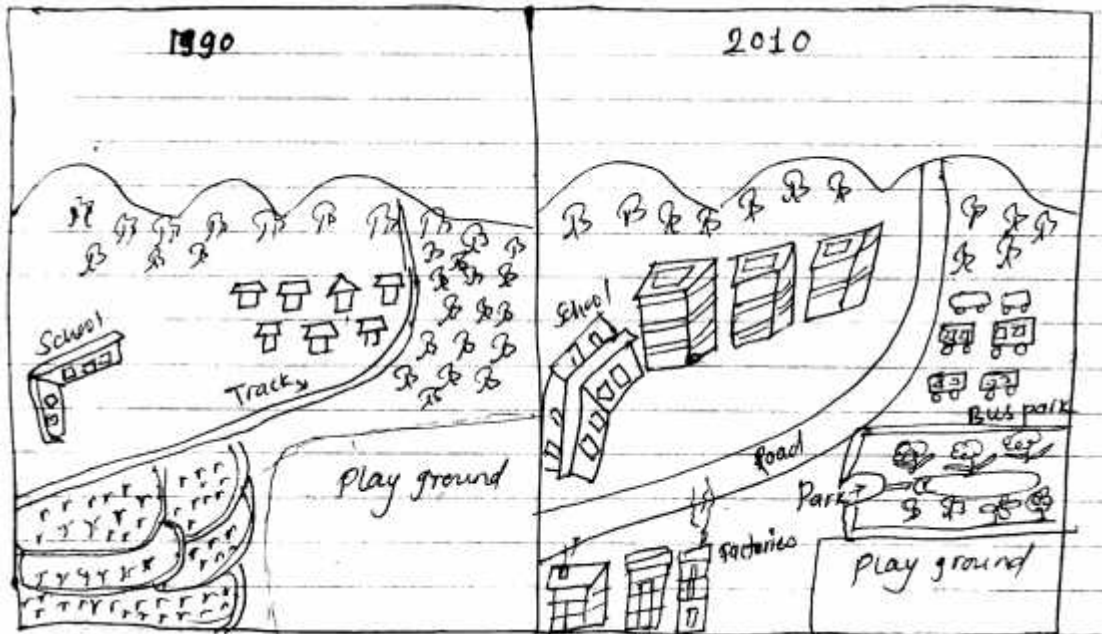 1990
School
Track
Play ground
2010
School
Road
Bus park
Park
Factories
Play ground